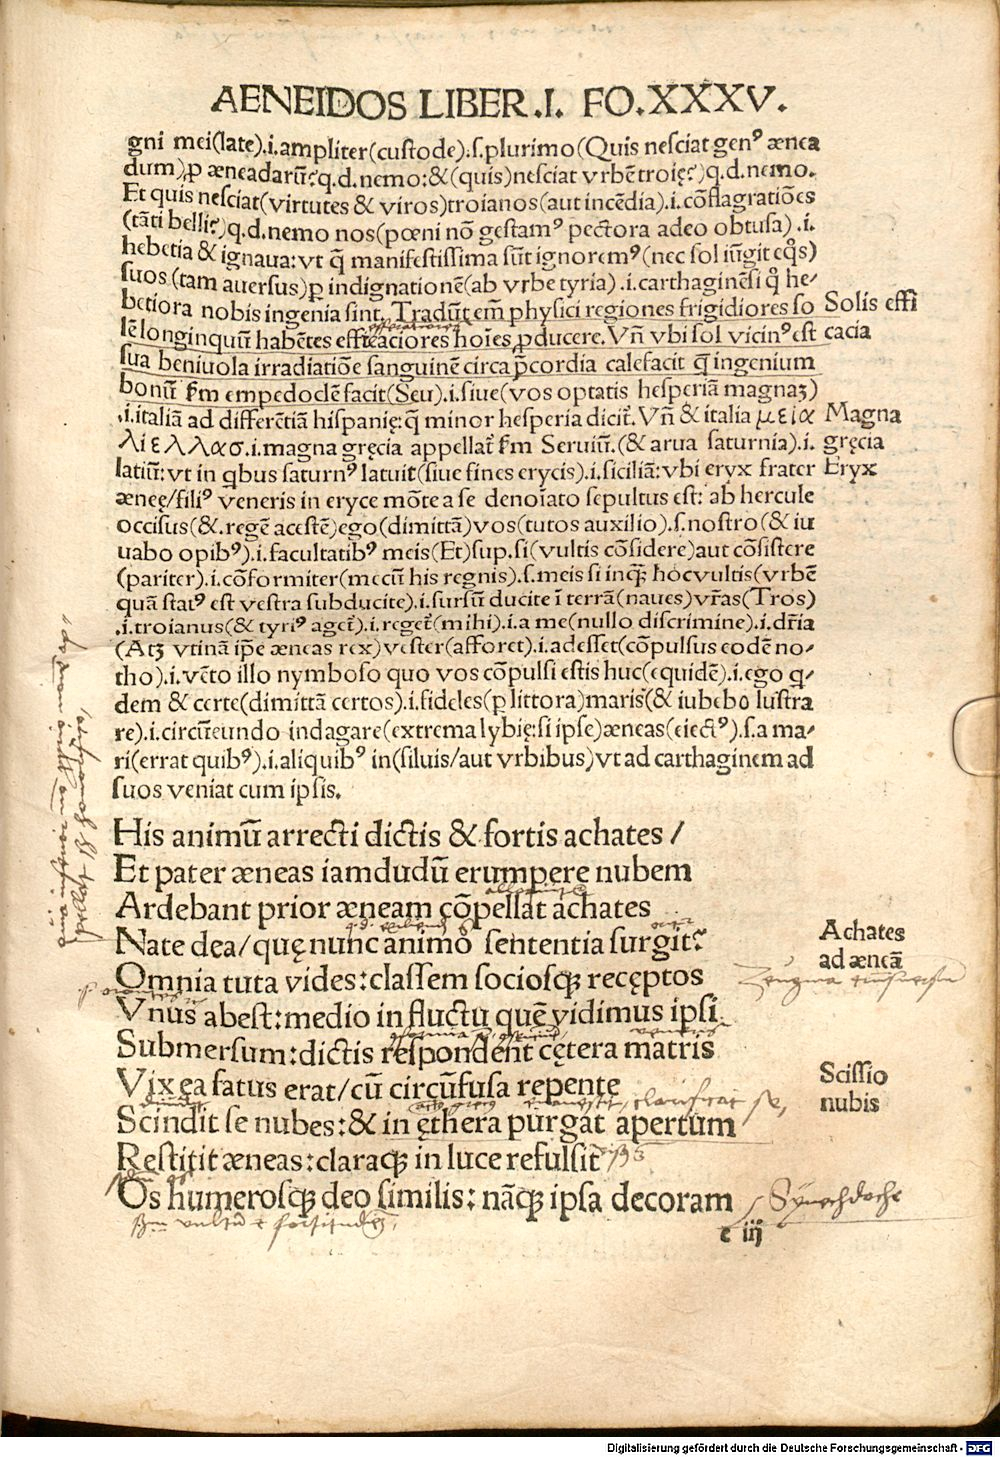 AENEIDOS LIBER.I. FO.XXXV.
gni mei(late).i.ampliter(custode).s.plurimo(Quis nesciat genꝰ ænea
dum)ꝓ æneadarũ?q.d.nemo:&(quis)nesciat vrbẽ troię?)q.d.nemo.
Et quis nesciat(virtutes & viros)troianos(aut incẽdia).i.cõflagratiões
(tãti belli?)q.d.nemo nos(pœni nõ gestamꝰ pectora adeo obtusa).i.
hebetia & ignaua:vt q̃ manifestissima sũt ignoremꝰ(nec sol iũgit eq̊s)
suos(tam auersus)ꝑ indignationẽ(ab vrbe tyria).i.carthaginẽsi q̊ he/
betiora nobis ingenia sint. Tradũt em̃ physici regiones frigidiores so
Solis effi
lẽ longinquũ habẽtes efficaciores hoĩes ꝓducere. Vñ vbi sol vicinꝰ est
cacia
sua beniuola irradiatiõe sanguinẽ circa p̃cordia calefacit q̃ ingenium
bonũ ẜm empedoclẽ facit(Seu).i.siue(vos optatis hesperiã magnaꝫ)
.i.italiã ad differẽtiã hispanię:q̃ minor hesperia dicit̃. Vñ & italia μεια
Magna
λιελλασ.i.magna gręcia appellat̃ ẜm Seruiũ.(& arua saturnia).i.
gręcia
latiũ:vt in qbus saturnꝰ latuit(siue fines erycis).i.siciliã:vbi eryx frater
Eryx
æneę/filiꝰ veneris in eryce mõte a se denoĩato sepultus est: ab hercule
occisus(&.regẽ acestẽ)ego(dimittã)vos(tutos auxilio).s.nostro(& iu
uabo opibꝰ).i.facultatibꝰ meis(Et)sup.si(vultis cõsidere)aut cõsistere
(pariter).i.cõformiter(mecũ his regnis).s.meis si inqꝫ hoc vultis(vrbẽ
quã statꝰ est vestra subducite).i.sursũ ducite ĩ terrã(naues)vr̃as(Tros)
.i.troianus(& tyriꝰ aget̃).i.reget̃(mihi).i.a me(nullo discrimine).i.dr̃ia
(Atꝫ vtinã ip̃e æneas rex)vester(afforet).i.adesset(cõpulsus eodẽ no-
tho).i.vẽto illo nymboso quo vos cõpulsi estis huc(equidẽ).i.ego q̃/
dem & certe(dimittã certos).i.fideles(ꝑ littora)maris(& iubebo lustra
re).i.circũeundo indagare(extrema lybię:si ipse)æneas(eiectꝰ).s.a ma-
ri(errat quibꝰ).i.aliquibꝰ in(siluis/aut vrbibus)vt ad carthaginem ad
suos veniat cum ipsis.
His animũ arrecti dictis & fortis achates /
Et pater æneas iamdudũ erumpere nubem
Ardebant prior æneam cõpellat achates
Nate dea/quę nunc animo sententia surgit?
Achates
ad æneã
Omnia tuta vides:classem sociosqꝫ receptos
Zeugma
Vnus abest:medio in fluctu quẽ vidimus ipsi
Submersum:dictis respondent cętera matris
Vix ea fatus erat/cũ circũfusa repente
Scissio
nubis
Scindit se nubes:& in ęthera purgat apertum
Restitit æneas:claraqꝫ in luce refulsit
Os humerosqꝫ deo similis: nãqꝫ ipsa decoram
Synecdoche
e iij
Digitalisierung gefördert durch die Deutsche Forschungsgemeinschaft - DFG